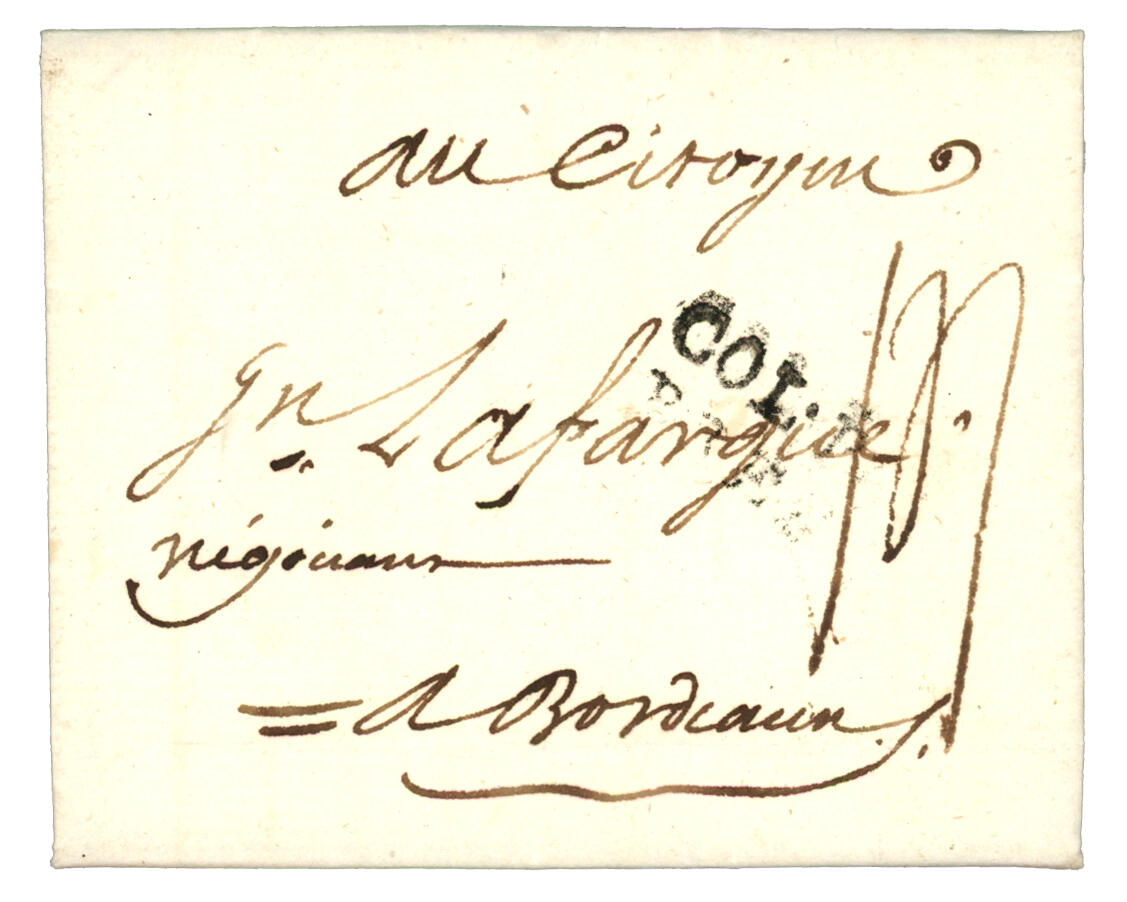 au Citoyen
COL.
Jn Lafargue
négociant
= A Bordeaux